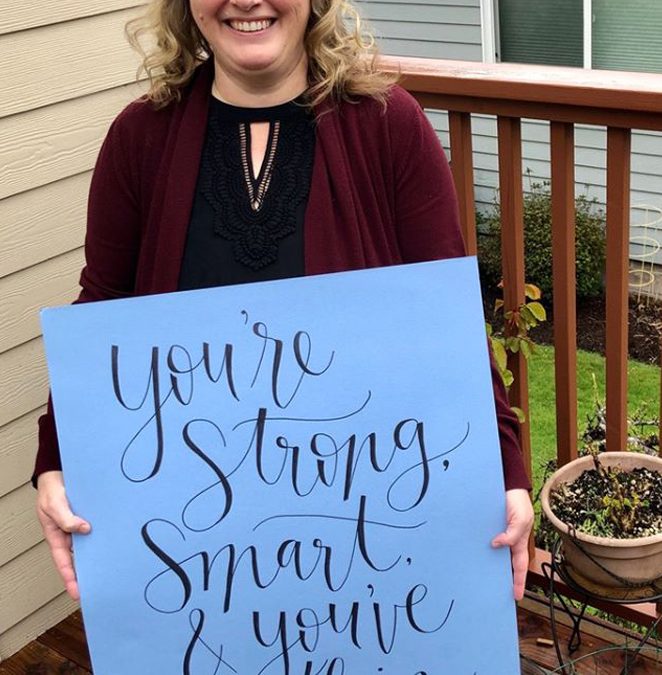 You're
Strong,
Smart,
& you've